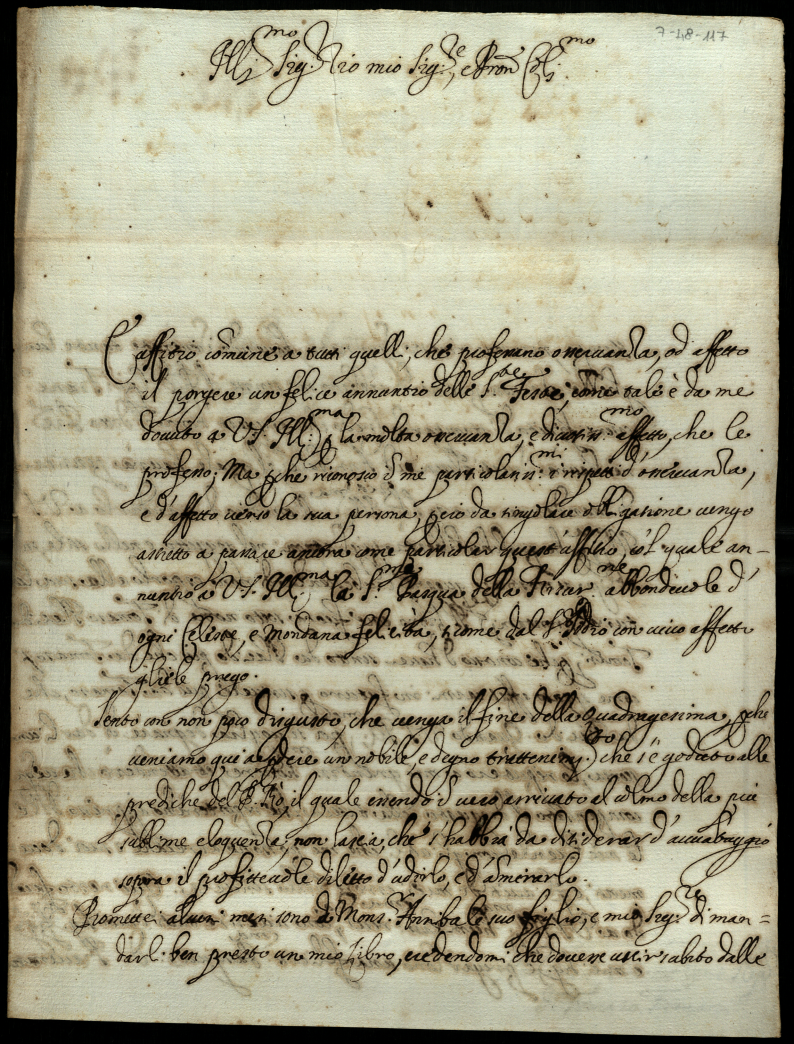 7-48-117
Ill:mo Sig:r Zio mio Sig:re, e Pron Col:mo
È affitio comune a tutti quelli, che profesano osseruanza, od affetto
il porgere un felice annuntio delle S.te Feste, come tale è da me
douuto a V.S. Ill:ma p la molta osseruanza, e diuotiss:mo affetto, che le
professo; Ma pche riconosco in me particolariss:mi i rispetti d'osseruanza,
e d'affetto uerso la sua persona, pciò da singolare obligatione uengo
astretto a passare ancora come particolar quest'affitio, col quale an-
nuntio a V.S. Ill:ma la S.ma Pasqua della Risur.ne abbondeuole d'
ogni Celeste, e mondana felicità, si come dal S. Iddio con uiuo affetto
gliele prego.
Sento con non poco disgusto, che uenga il fine della Quadragesima, pche
ueniamo qui a pdere un nobile, e degno trattenim:to che s'è goduto alle
prediche del P. Rò, il quale essendo in uero arriuato al colmo della più
sublime eloquenza, non lascia, che s'habbia da disiderar d'auuantaggio
sopra il profitteuole diletto d'udirlo, e d'amirarlo.
Promettei alcuni mesi sono a Mons.r Annibale suo figlio, e mio Sig:re di man=
darl. ben presto un mio Libro, credendomi che douesse uscir subito dalle